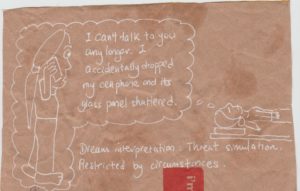 I can't talk to you
any longer. I
accidentally dropped
my cellphone and its
glass panel shattered.
Dream interpretation: Threat simulation
Restricted by circumstances.
i'm